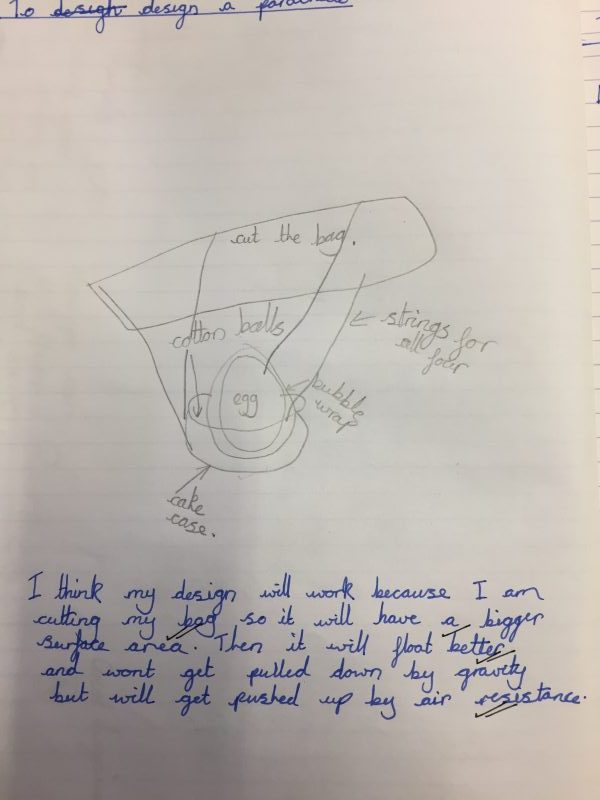 To design design a parachute
cut the bag.
cotton balls
strings for
all four
bubble
wrap
egg
cake
case.
I think my design will work because I am
cutting my bag so it will have a bigger
surface area. Then it will float better
and wont get pulled down by gravity
but will get pushed up by air resistance.